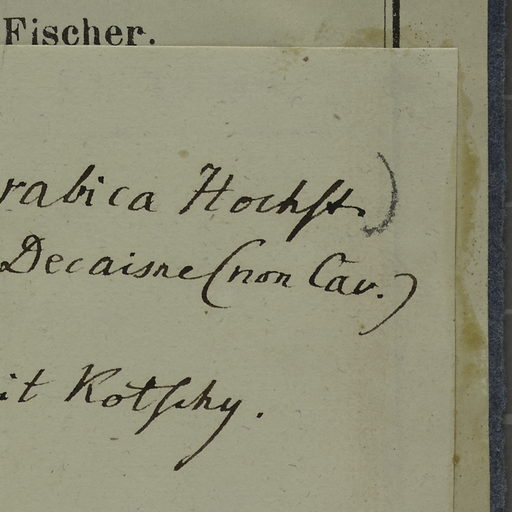 Fischer.
rabica Hochst.)
Decaisne (non Cav.)
it Kotschy.